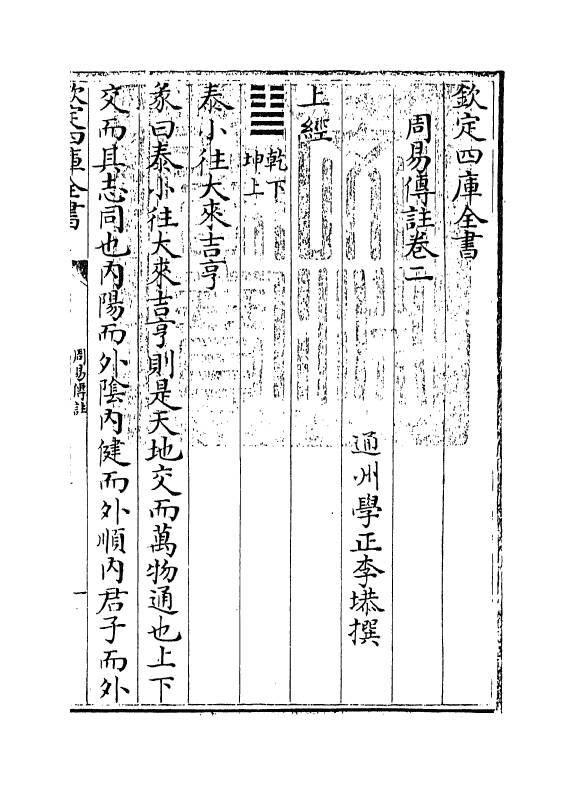 欽定四庫全書
周易傳註卷二
通州學正李塨撰
上經
䷊乾下坤上
泰小往大來吉亨
彖曰泰小往大來吉亨則是天地交而萬物通也上下
交而其志同也内陽而外陰内健而外順内君子而外
欽定四庫全書
周易傳註
一